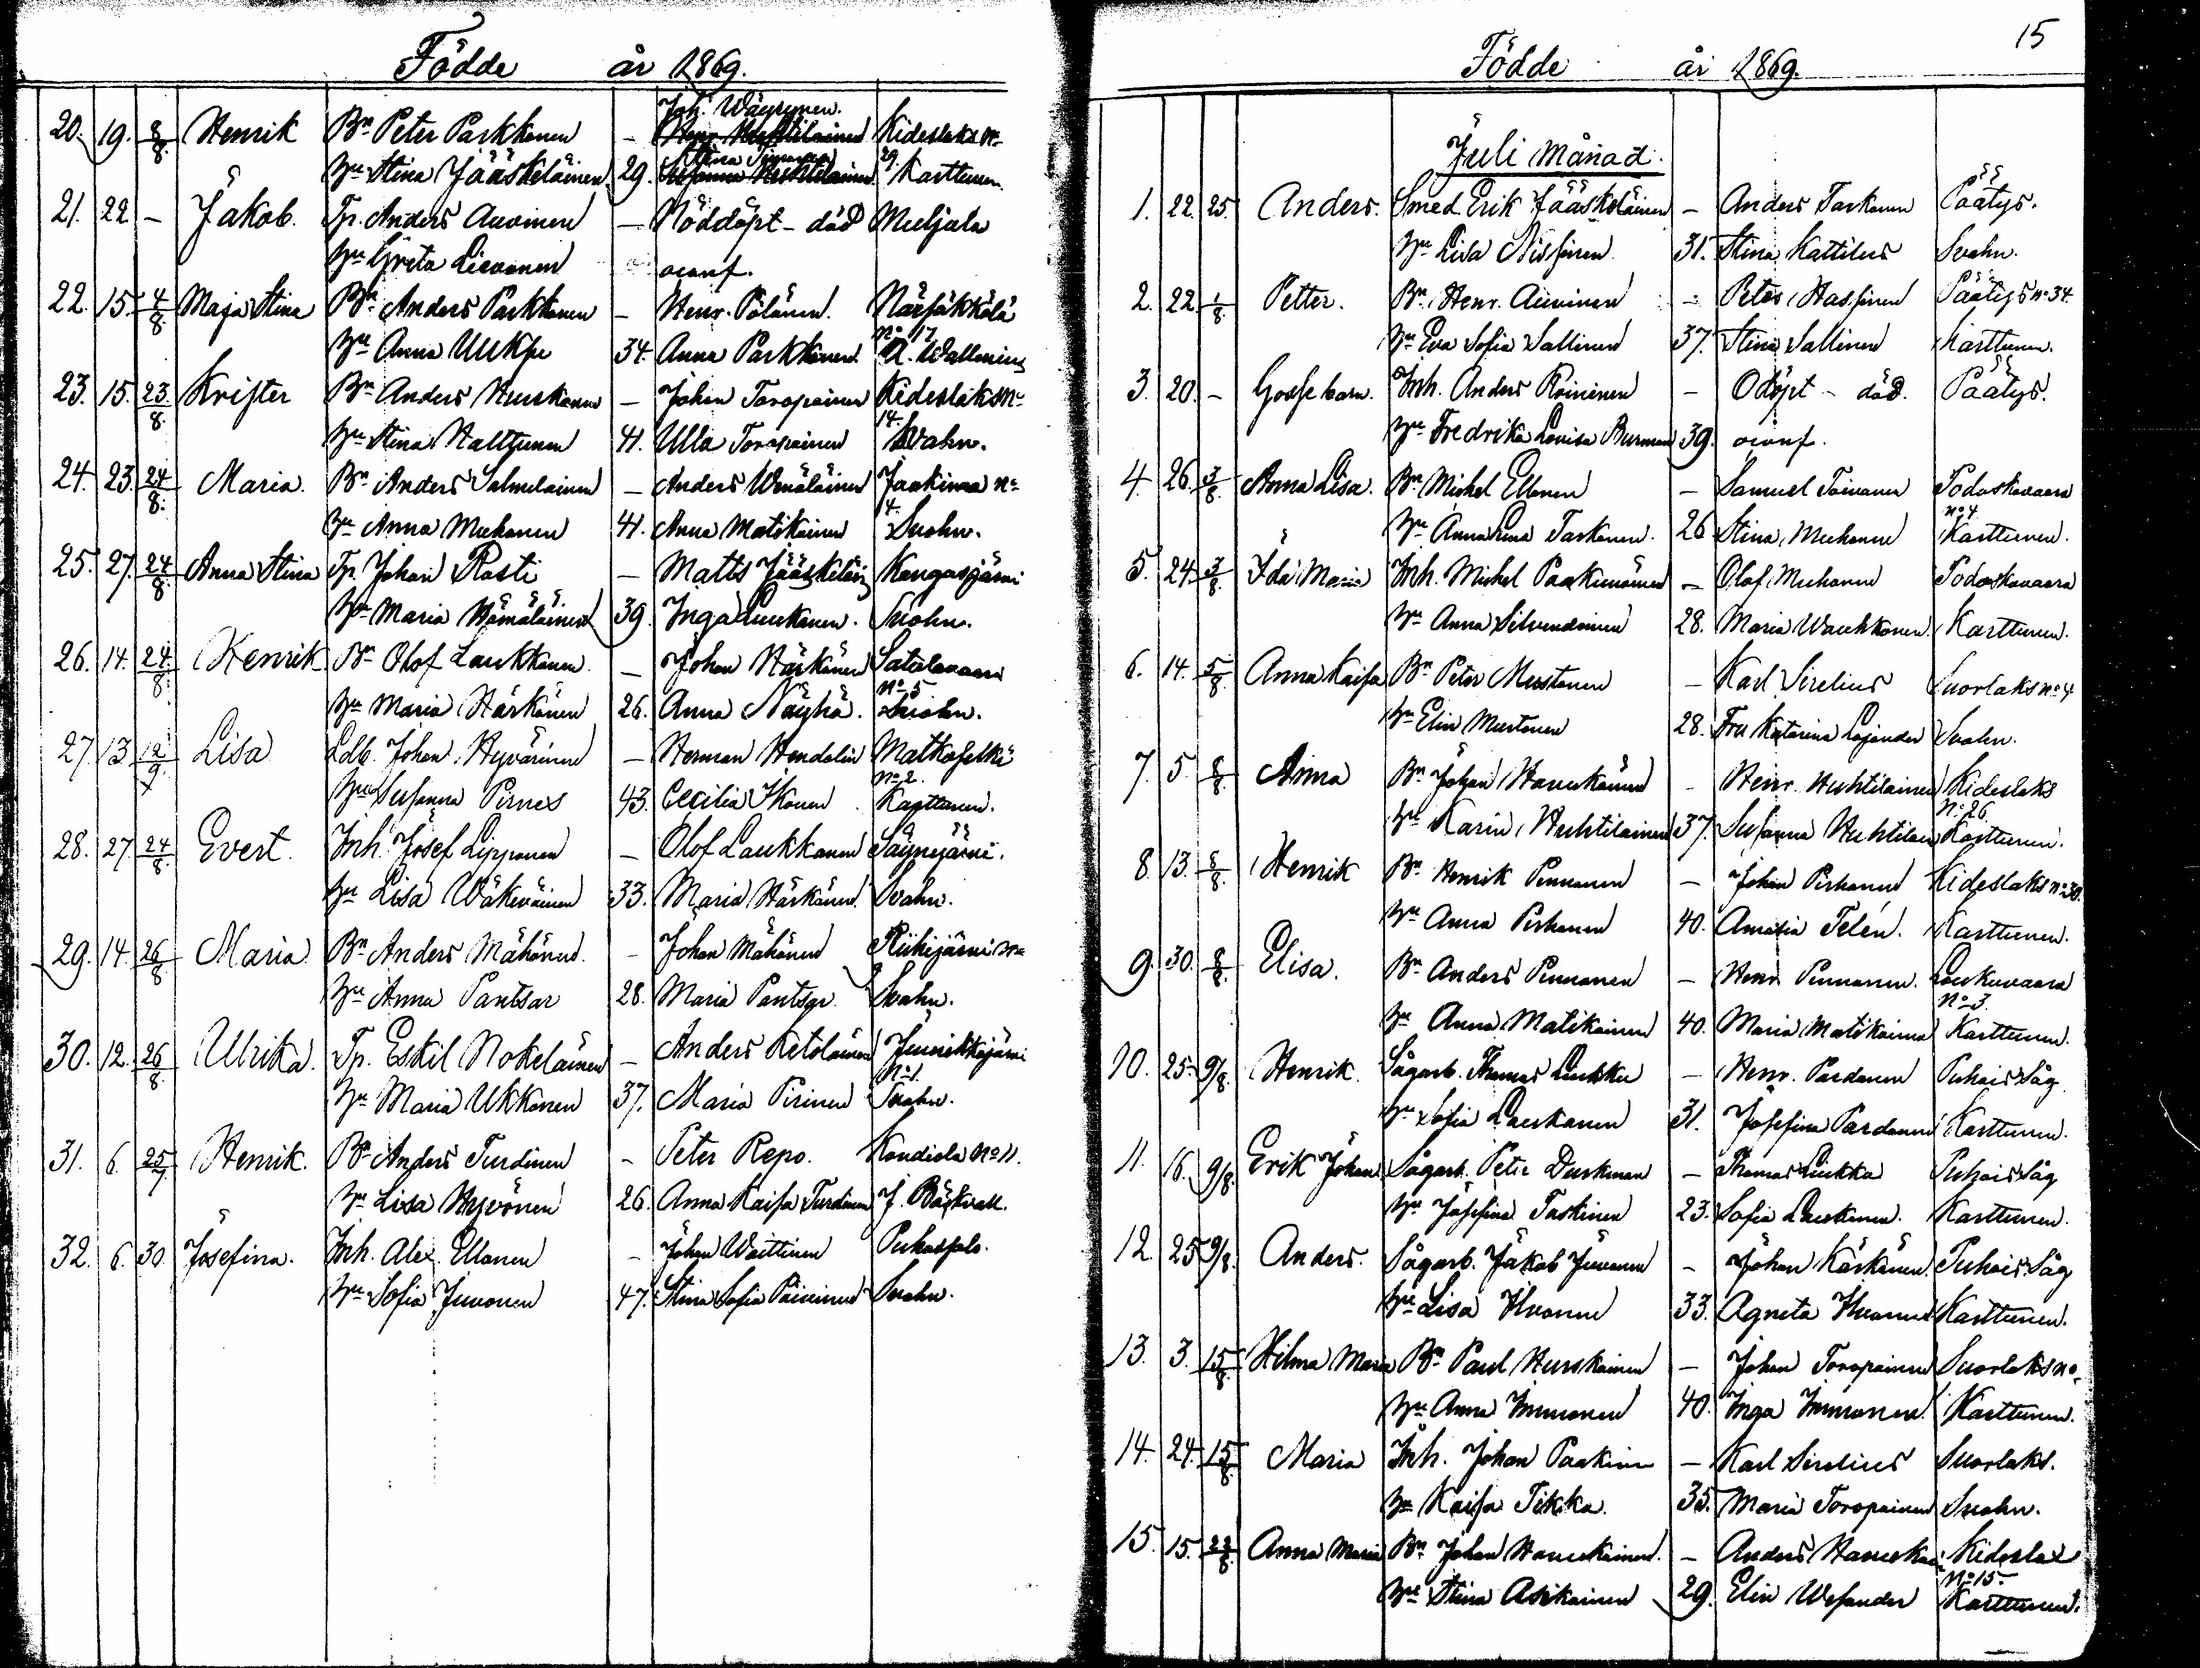 Födde år 1869.
Joh. Wäyrynen.
20. 19. 8/8. Henrik Bn Peter Parkkonen – Henr. Huhtilainen Kideslaks No
Hu Stina Jääskeläinen 29. Susanna Huhtilainen 29. Karttunen.
21. 22 – Jakob. Tp. Anders Auvinen – Nöddöpt – död Muljula
Hu Greta Lievonen oconf.
22. 15. 4/8. Maja Stina Bn Anders Parkkonen – Henr. Pölönen. Närsäkkälä
No 17
Hu Anna Uuksu 34. Anna Parkkonen. A. Wallenius
23. 15. 23/8. Krister Bn Anders Hurskainen – Johan Toropainen Kideslaks No
14.
Hu Stina Halttunen 41. Ulla Toropainen Svahn.
24. 23. 24/8. Maria. Bn Anders Salmelainen – Anders Wenäläinen Jaakima No
4.
Hu Anna Muhonen 41. Anna Matikainen Svahn.
25. 27. 24/8. Anna Stina Tp. Johan Rasti – Matts Jääskeläin Kangasjärvi
Hu Maria Hämäläinen 39. Inga Laukkanen. Svahn.
26. 14. 24/8. Henrik Bn Olof Laukkanen. – Johan Härkönen Satulavaara
No 5
Hu Maria Härkönen 26. Anna Näyhä. Svahn.
27. 13. 12/9. Lisa Ldb. Johan Hyvärinen – Herman Hendolin Matkaselkä
No 2.
Hu Susanna Pirnes 43. Cecilia Ikonen Karttunen.
28. 27. 24/8. Evert. Inh. Josef Lipponen – Olof Laukkanen Säynejärvi.
Hu Lisa Wäkeväinen 33. Maria Härkönen. Svahn.
29. 14. 26/8 Maria Bn Anders Mähönen. – Johan Mähönen Riihijärvi No
Hu Anna Pantsar 28. Maria Pantsar. Svahn.
30. 12. 26/8. Ulrika. Tp. Eskil Nokelainen – Anders Ketolainen Juurikkajärvi
No 1.
Hu Maria Ukkonen 37. Maria Pirinen Svahn.
31. 6. 25/7 Henrik. Bn Anders Turdinen – Peter Repo. Kondiola No 11.
Hu Lisa Hyvönen 26. Anna Kaisa Turdinen J. Bäckvall.
32. 6. 30. Josefina. Inh. Alex. Ellonen – Johan Waittinen Puhossalo.
Hu Sofia Juvonen 47. Stina Sofia Päivinen Svahn.
15
Födde år 1869.
Juli månad.
1. 22. 25. Anders. Smed Erik Jääskeläinen – Anders Taskanen Päätys.
Hu Lisa Nissinen. 31. Stina Kattilus Svahn.
2. 22 1/8. Petter. Bn Henr. Auvinen – Peter Hassinen Päätys No 34.
Hu Eva Sofia Sallinen 37. Stina Sallinen Karttunen.
3. 20. – Gosse barn. Inh. Anders Roininen – Odöpt – död. Päätys.
Hu Fredrika Lovisa Burman 39. oconf.
4. 26. 3/8. Anna Lisa. Bn Michel Ellonen – Samuel Toivanen Podoskavaara
No 4.
Hu Anna Lena Taskanen. 26 Stina Muhonen Karttunen.
5. 24. 3/8. Ida Maria Inh. Michel Paakkunainen – Olof Muhonen Podoskavaara
Hu Anna Silvendoinen 28. Maria Waukkonen. Karttunen.
6. 14. 5/8. Anna Kaisa Bn Peter Mustonen – Karl Sirelius Suorlaks No 4
Hu Elin Mustonen 28. Fru Katarina Lojander Svahn.
7. 5. 8/8. Anna Bn Johan Haverkainen – Henr. Huhtilainen Kideslaks
No 26.
Hu Karin Huhtilainen 37. Susanna Huhtilain Karttunen.
8. 13. 8/8. Henrik Bn Henrik Pennanen – Johan Pirhonen Kideslaks No 30.
Hu Anna Pirhonen 40. Amalia Telén. Karttunen.
9. 30. 8/8. Elisa. Bn Anders Pennanen – Henr. Pennanen. Loukuvaara
No 3.
Hu Anna Matikainen 40. Maria Matikainen Karttunen.
10. 25. 9/8. Henrik. Sågarb. Thomas Luukka – Henr. Pardanen Puhois Såg
Hu Sofia Laukkanen 31. Josefina Pardanen Karttunen.
11. 16. 9/8. Erik Johan Sågarb. Peter Duskman – Thomas Luukka Puhois Såg
Hu Josefina Taskinen 23. Sofia Laukkanen. Karttunen.
12. 25 9/8. Anders. Sågarb. Jakob Juvonen – Johan Kärkänen. Puhois Såg
Hu Lisa Hvonen 33. Agneta Hvonen Karttunen.
13. 3. 15/8. Hilma Maria Bn Paul Hurskainen – Johan Toropainen Suorlaks No
Hu Anna Immonen 40. Inga Immonen. Karttunen.
14. 24. 15/8. Maria Inh. Johan Paakinen – Karl Sirelius Suorlaks.
Hu Kaisa Tikka. 35. Maria Toropainen Svahn.
15. 15. 22/8. Anna Maria Bn Johan Haverkainen. – Anders Haverkain Kideslax
No 15.
Hu Stina Asikainen 29. Elin Wesander Karttunen.